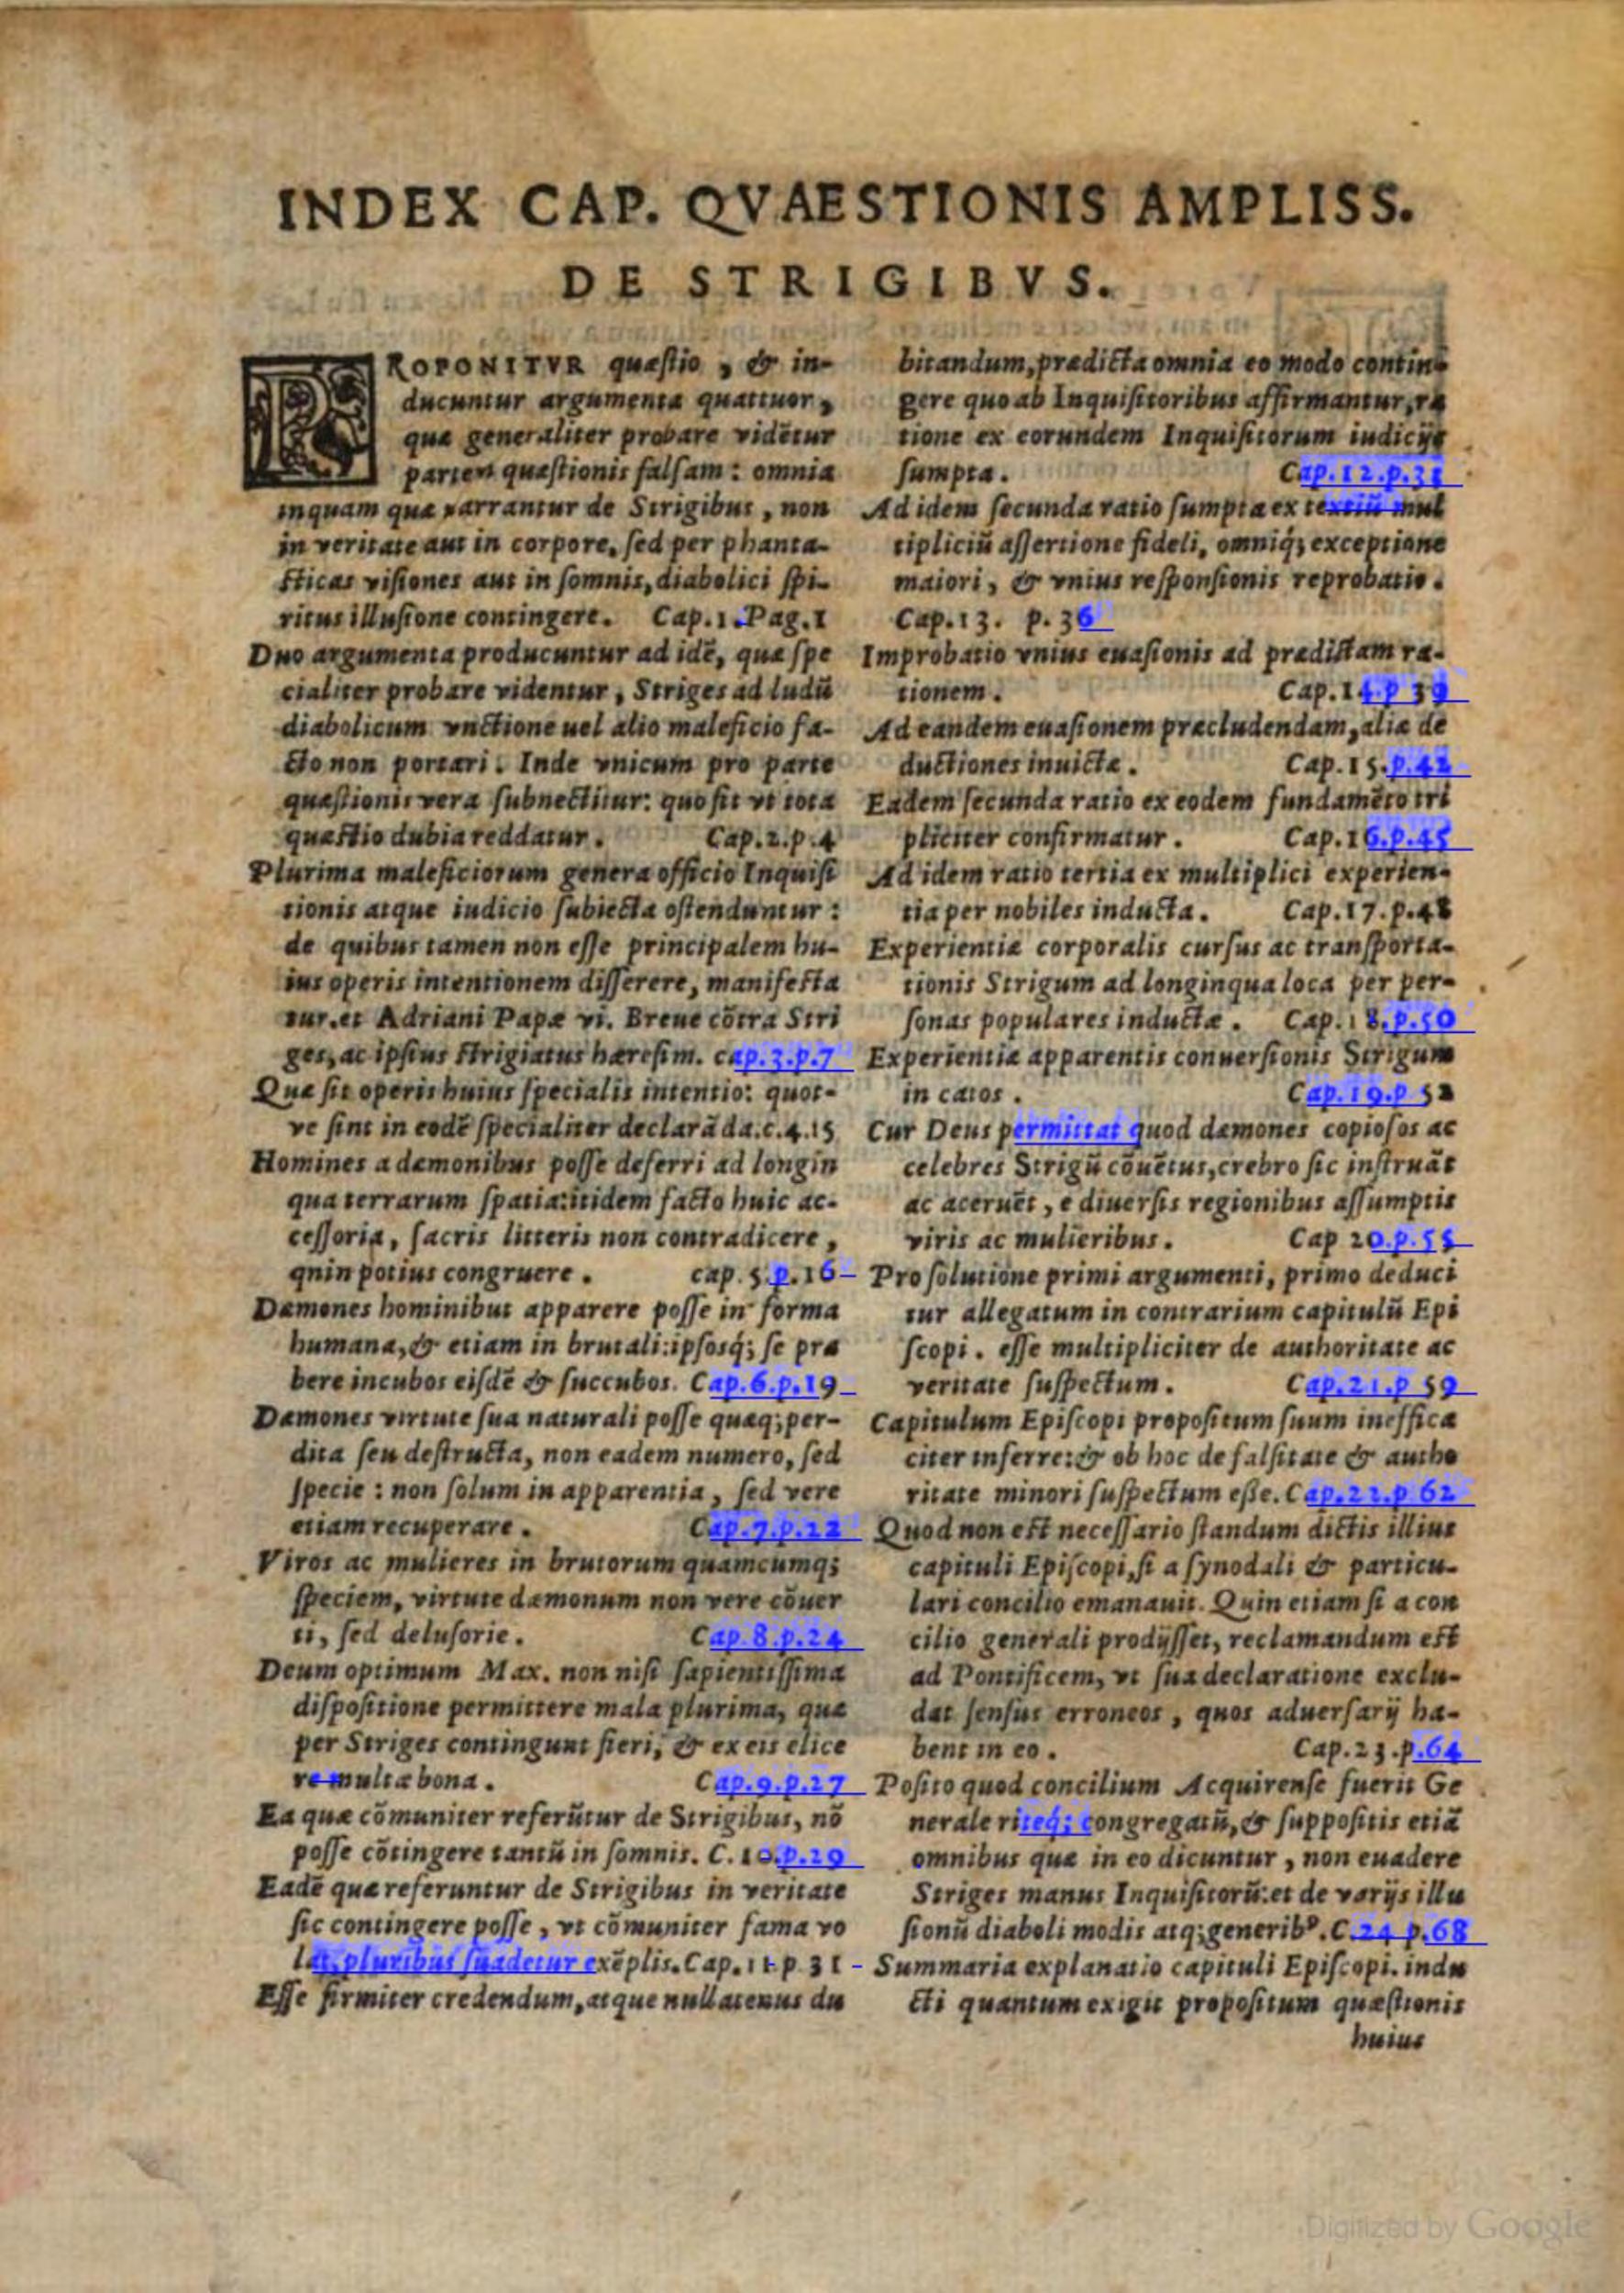 INDEX CAP. QVAESTIONIS AMPLISS.
DE STRIGIBVS.
PROPONITVR quæſtio, & in-
ducuntur argumenta quattuor,
quæ generaliter probare vidētur
partem quæſtionis falſam: omnia
inquam quæ narrantur de Strigibus, non
in veritate aut in corpore, ſed per phanta-
ſticas viſiones aut in ſomnis, diabolici ſpi-
ritus illuſione contingere. Cap.1.Pag.1
Duo argumenta producuntur ad idē, quæ ſpe
cialiter probare videntur, Striges ad ludū
diabolicum vnctione uel alio maleficio fa-
cto non portari. Inde vnicum pro parte
quæſtionis vera ſubnectitur: quo fit vt tota
quæſtio dubia reddatur. Cap.2.p.4
Plurima maleficiorum genera officio Inquiſi
tionis atque iudicio ſubiecta oſtenduntur:
de quibus tamen non eſſe principalem hu-
ius operis intentionem diſſerere, manifeſta
tur.et Adriani Papæ vi. Breue cōtra Stri
ges, ac ipſius ſtrigiatus hæreſim. cap.3.p.7
Quæ ſit operis huius ſpecialis intentio: quot-
ve ſint in eodē ſpecialiter declarāda.c.4.15
Homines a dæmonibus poſſe deferri ad longin
qua terrarum ſpatia:itidem facto huic ac-
ceſſoria, ſacris litteris non contradicere,
quin potius congruere. cap.5.p.16
Dæmones hominibus apparere poſſe in forma
humana, & etiam in brutali:ipſosq; ſe præ
bere incubos eiſdē & ſuccubos. Cap.6.p.19
Dæmones virtute ſua naturali poſſe quæq; per-
dita ſeu deſtructa, non eadem numero, ſed
ſpecie: non ſolum in apparentia, ſed vere
etiam recuperare. Cap.7.p.22
Viros ac mulieres in brutorum quamcumq;
ſpeciem, virtute dæmonum non vere cōuer
ti, ſed deluſorie. Cap.8.p.24
Deum optimum Max. non niſi ſapientiſſima
diſpoſitione permittere mala plurima, quæ
per Striges contingunt fieri, & ex eis elice
re multa bona. Cap.9.p.27
Ea quæ cōmuniter referūtur de Strigibus, nō
poſſe cōtingere tantū in ſomnis. C.10.p.29
Eadē quæ referuntur de Strigibus in veritate
ſic contingere poſſe, vt cōmuniter fama vo
lat, pluribus ſuadetur exēplis. Cap.11.p 31
Eſſe firmiter credendum, atque nullatenus du
bitandum, prædicta omnia eo modo contin-
gere quo ab Inquiſitoribus affirmantur, ra
tione ex eorundem Inquiſitorum iudicijs
ſumpta. Cap.12.p.31
Ad idem ſecunda ratio ſumpta ex textiū mul
tipliciū aſſertione fideli, omniq; exceptione
maiori, & vnius reſponſionis reprobatio.
Cap.13. p.36
Improbatio vnius euaſionis ad prædictam ra-
tionem. Cap.14.p 39
Ad eandem euaſionem præcludendam, aliæ de
ductiones inuictæ. Cap.15.p.42
Eadem ſecunda ratio ex eodem fundamēto tri
pliciter confirmatur. Cap.16.p.45
Ad idem ratio tertia ex multiplici experien-
tia per nobiles inducta. Cap.17.p.48
Experientiæ corporalis curſus ac tranſporta-
tionis Strigum ad longinqua loca per per-
ſonas populares inductæ. Cap.18.p.50
Experientiæ apparentis conuerſionis Strigum
in catos. Cap.19.p 52
Cur Deus permittat quod dæmones copioſos ac
celebres Strigū cōuētus, crebro ſic inſtruāt
ac aceruēt, e diuerſis regionibus aſſumptis
viris ac mulieribus. Cap 20.p.55
Pro ſolutione primi argumenti, primo deduci
tur allegatum in contrarium capitulū Epi
ſcopi. eſſe multipliciter de authoritate ac
veritate ſuſpectum. Cap.21.p 59
Capitulum Epiſcopi propoſitum ſuum ineffica
citer inferre: & ob hoc de falſitate & autho
ritate minori ſuſpectum eſſe. Cap.22.p 62
Quod non eſt neceſſario ſtandum dictis illius
capituli Epiſcopi, ſi a ſynodali & particu-
lari concilio emanauit. Quin etiam ſi a con
cilio generali prodijſſet, reclamandum eſt
ad Pontificem, vt ſua declaratione exclu-
dat ſenſus erroneos, quos aduerſarij ha-
bent in eo. Cap.23.p.64
Poſito quod concilium Acquirenſe fuerit Ge
nerale riteq; congregatū, & ſuppoſitis etiā
omnibus quæ in eo dicuntur, non euadere
Striges manus Inquiſitorū:et de varijs illu
ſionū diaboli modis atq; generibꝰ. C.24 p.68
Summaria explanatio capituli Epiſcopi. indu
cti quantum exigit propoſitum quæſtionis
huius
Digitized by Google